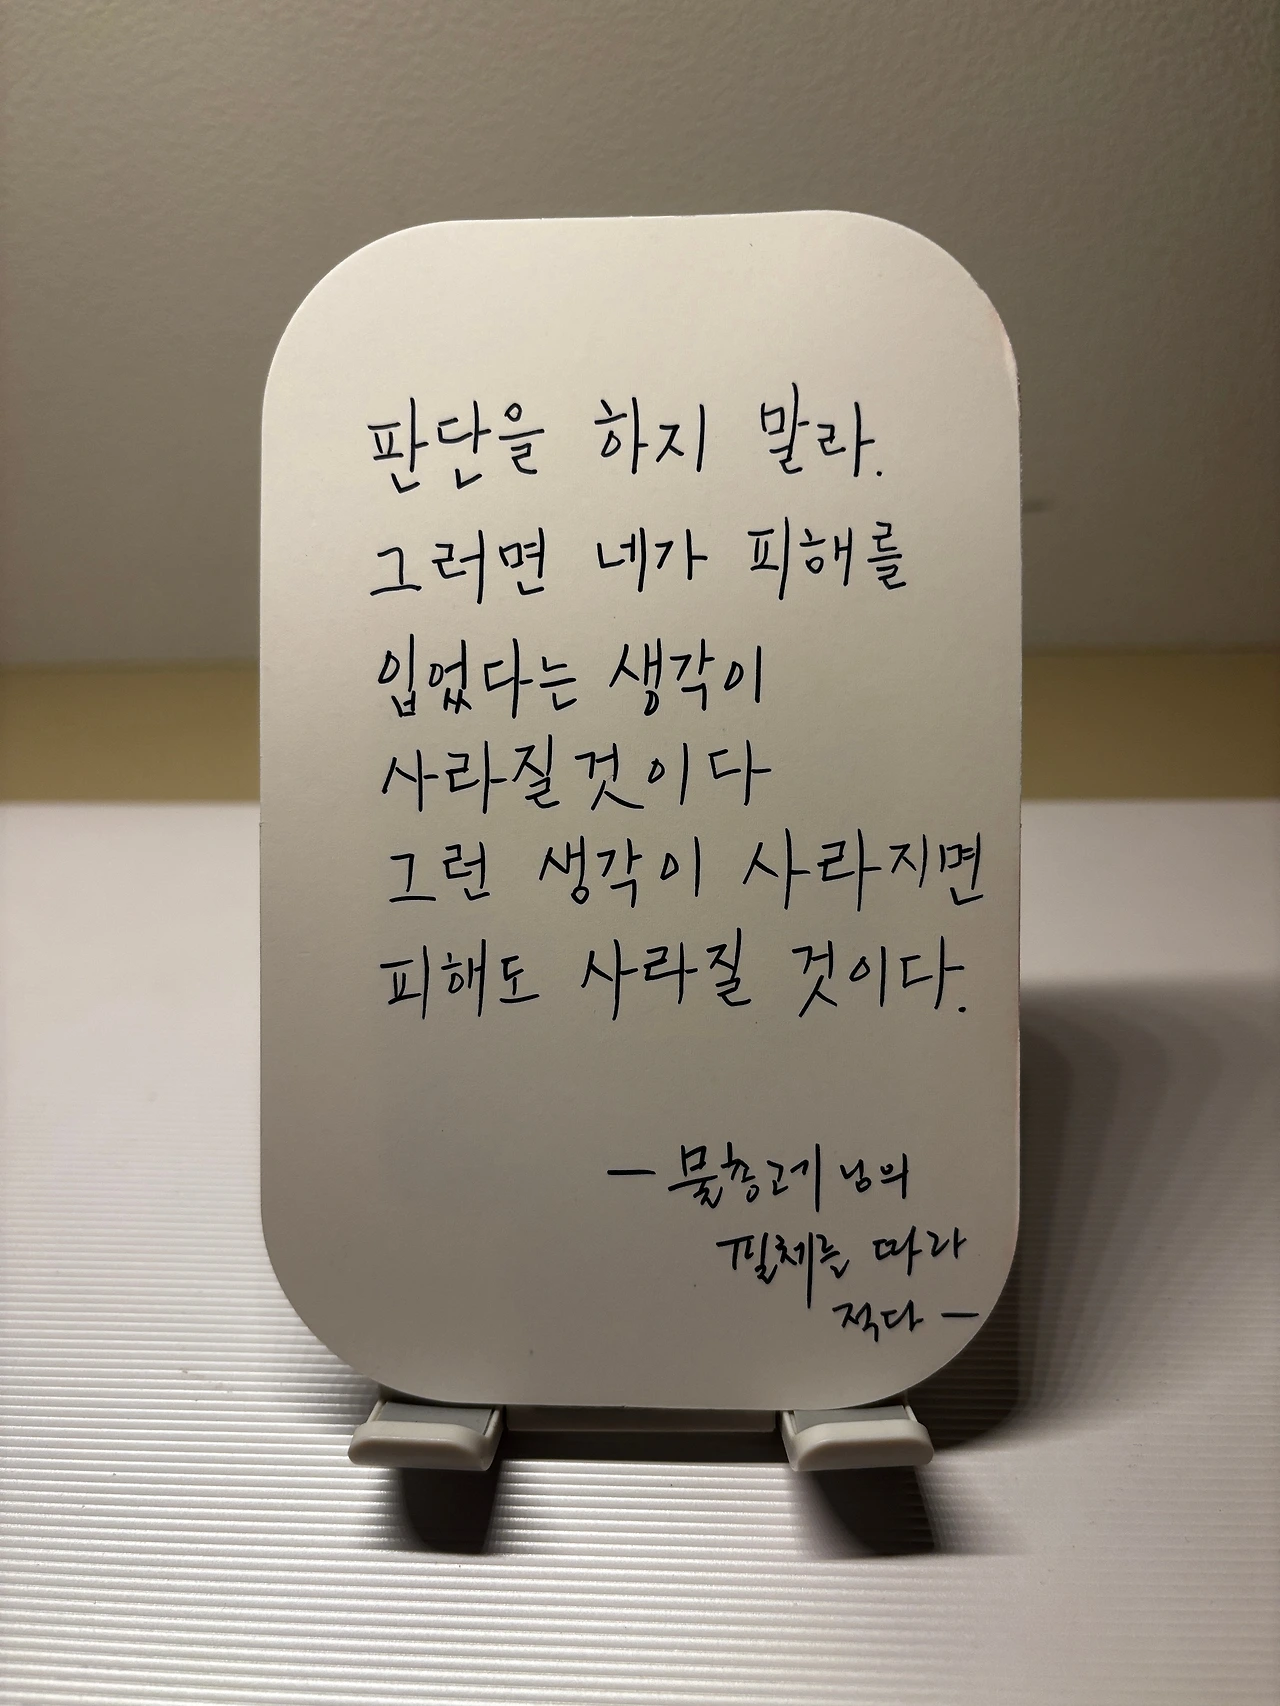 판단을 하지 말라.
그러면 네가 피해를
입었다는 생각이
사라질 것이다
그런 생각이 사라지면
피해도 사라질 것이다.
- 물총고기 님의
필체를 따라
적다 -